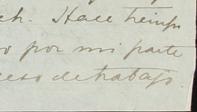 ch. Hace tiempo
o por mi parte
ceso de trabajo.